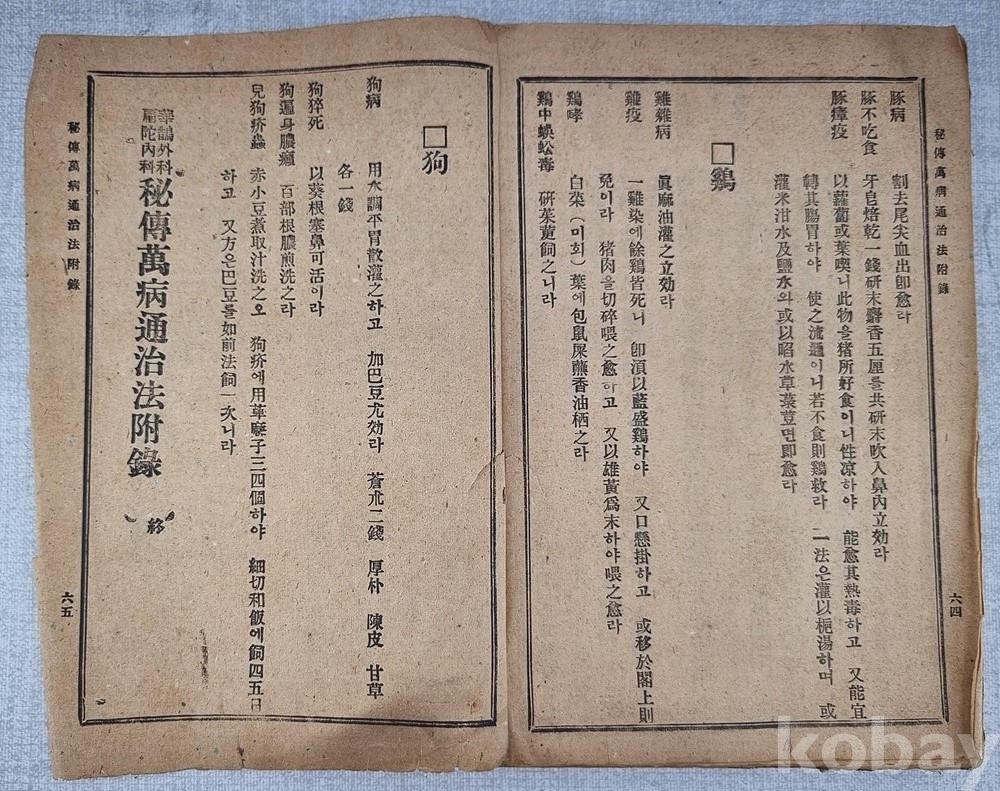 秘傳萬病通治法附錄
六四
豚病 割去尾尖血出卽愈라
豚不吃食 牙皂焙乾一錢硏末麝香五厘를共硏末吹入鼻內立効라
豚瘴疫 以蘿蔔或葉喫니此物을猪所好食이니性凉하야 能愈其熱毒하고 又能宜
轉其腸胃하야 使之流通이니若不食則鷄救라 二法은灌以梔湯하며 或
灌米泔水及鹽水와或以㗖水草菜荳면卽愈라
□鷄
雞雜病 眞麻油灌之立効라
雞疫 一雞染에餘鷄皆死니 卽湏以藍盛鷄하야 又口懸掛하고 或移於閣上則
免이라 猪肉을切碎喂之愈하고 又以雄黃爲末하야喂之愈라
鷄哮 白菜(미회)葉에包鼠屎蘸香油栖之라
鷄中蜈蚣毒 硏茱萸飼之니라
□狗
狗病 用水調平胃散灌之하고 加巴豆尤効라 蒼朮二錢 厚朴 陳皮 甘草
各一錢
狗猝死 以葵根塞鼻可活이라
狗遍身膿癩 百部根膿煎洗之라
兒狗疥蟲 赤小豆煮取汁洗之오 狗疥에用萆麻子三四個하야 細切和飯에飼四五日
하고 又方은巴豆를如前法飼一次니라
華鵲外科
扁陀內科
秘傳萬病通治法附錄 終
秘傳萬病通治法附錄
六五
kobay